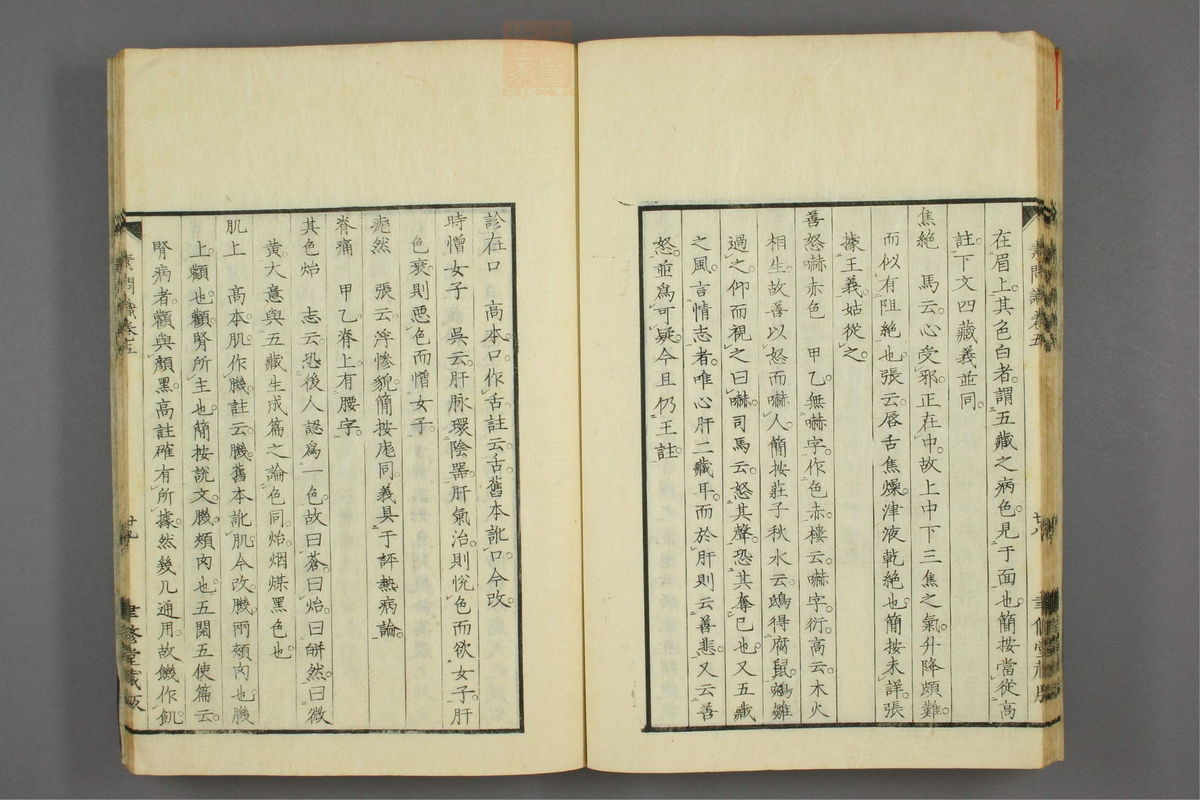 在眉上其色白者謂五藏之病色見于面也簡按當從高
註下文四藏義並同
焦絕　馬云心受邪正在中故上中下三焦之氣升降頗難
而似有阻絕也張云唇舌焦燥津液乾絕也簡按未詳張
據王義姑從之
善怒嚇赤色　甲乙無嚇字作色赤樓云嚇字衍高云木火
相生故善以怒而嚇人簡按莊子秋水云鴟得腐鼠鵷雛
過之仰而視之曰嚇司馬云怒其聲恐其奪己也又五藏
之風言情志者唯心肝二藏耳而於肝則云善悲又云善
怒並為可疑今且仍王註
素問識卷五
廿八
聿修堂藏版
診在口　高本口作舌註云舌舊本訛口今改
時憎女子　吳云肝脉環陰器肝氣治則悅色而欲女子肝
色衰則惡色而憎女子
皏然　張云淬慘貌簡按庬同義具于評熱病論
脊痛　甲乙脊上有腰字
其色炲　志云恐後人認為一色故曰蒼曰炲曰皏然曰微
黄大意與五藏生成篇之論色同炲烟煤黑色也
肌上　高本肌作䐣註云䐣舊本訛肌今改䐣兩頰肉也䐣
上顴也顴腎所主也簡按說文䐣頰肉也五閱五使篇云
腎病者顴與顏黑高註確有所據然幾几通用故饑作飢
素問識卷五
廿九
聿修堂藏版